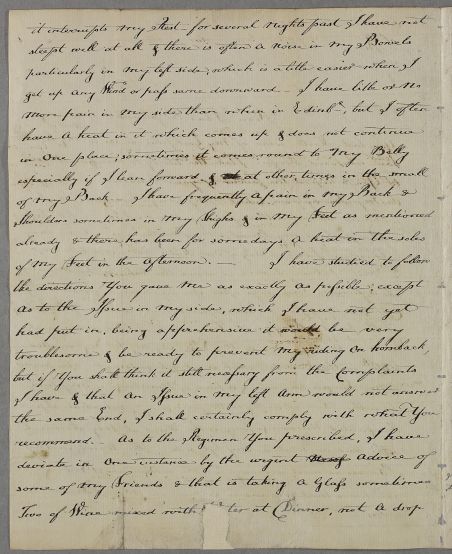 it interrupts my Rest for several nights past I have not
sleept well at all & there is often a noise in my Bowels
particularly in my left side, which is a little easier when I
get up any Wind or pass same downward – I have litle or no
more pain in my side than when in Edinbr, but I often
have a heat in it which comes up & does not continue
in one place, sometimes it comes round to my Belly
especially if I lean forward & at other times in the small
of my Back – I have frequently a pain in my Back &
Shoulders sometimes in my Thighs & in my Feet as mentioned
already & there has been for some days a heat in the soles
of my Feet in the afternoon. — I have studied to follow
the directions You gave me as exactly as possible, except
as to the Issue in my side, which I have not yet
had put in, being apprehensive it would be very
troublesome & be ready to prevent my riding on horseback,
but if You shall think it still necessary from the Complaints
I have & that an Issue in my left Arm would not answer
the same End, I shall certainly comply with what You
recommend. – As to the Regimen You prescribed, I have
deviate in one instance by the urgent advice of
some of my Friends & that is taking a Glass sometimes
Two of Wine mixed with ter at Dinner, not a drop